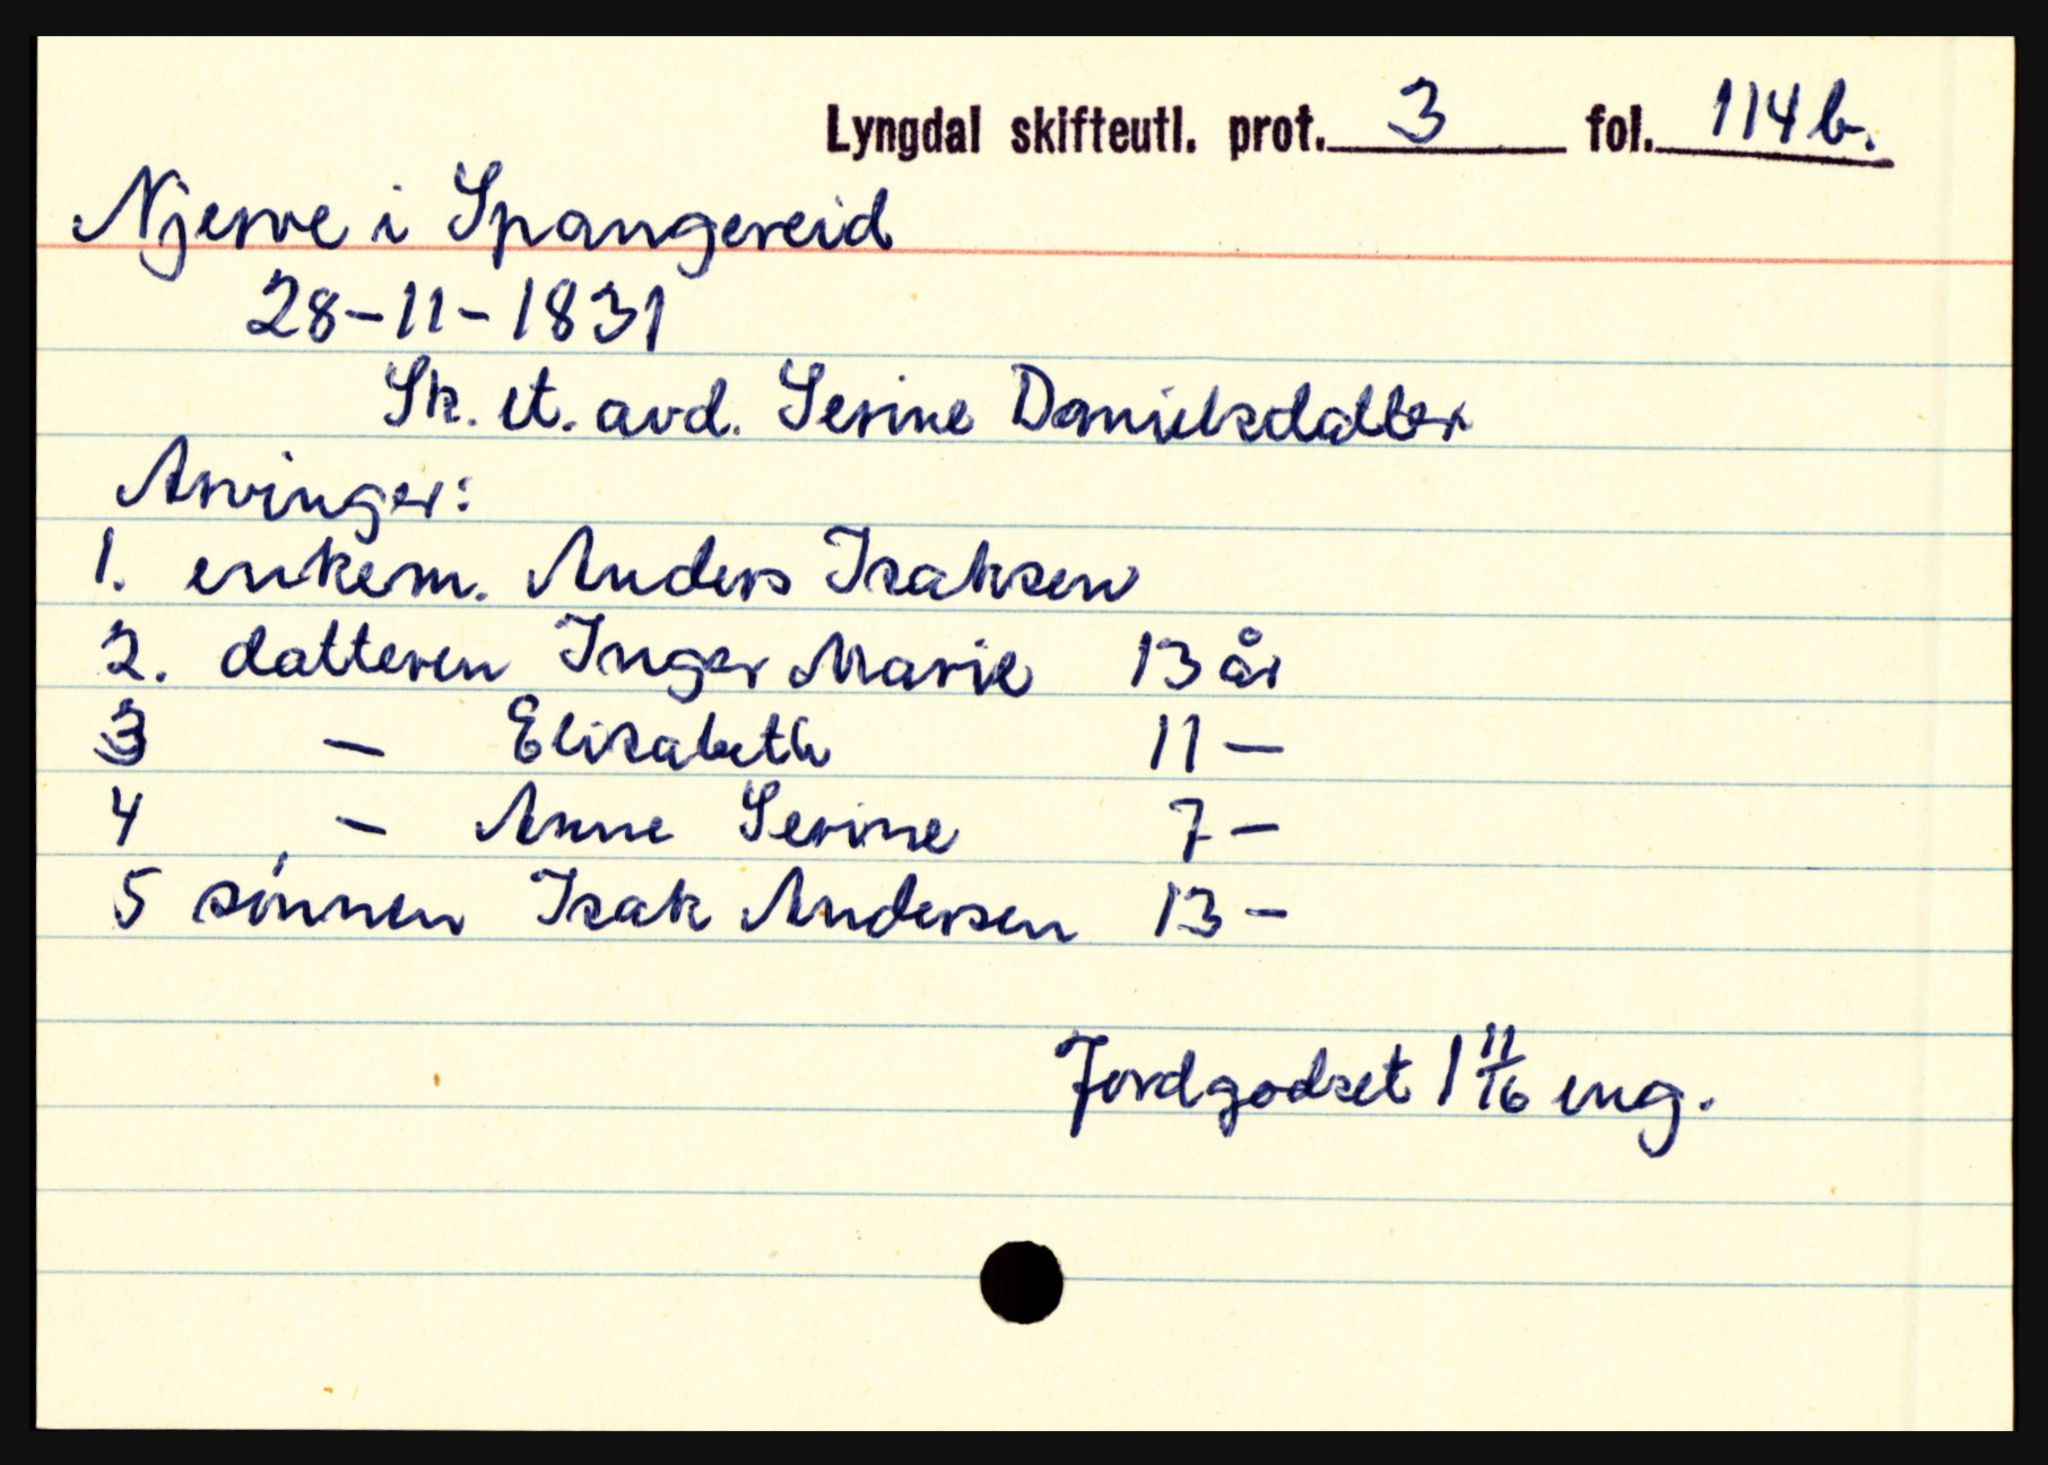 Lyngdal skifteutl. prot. 3 fol. 114b.
Njerve i Spangereid
28-11-1831
Sk. et. avd. Serine Danielsdatter
Arvinger:
1. enkem. Anders Isaksen
2. datteren Inger Marie 13 år
3 - Elisabeth 11 -
4 - Anne Serine 7 -
5 sønnen Isak Andersen 13 -
Jordgodset 1 11/16 eng.